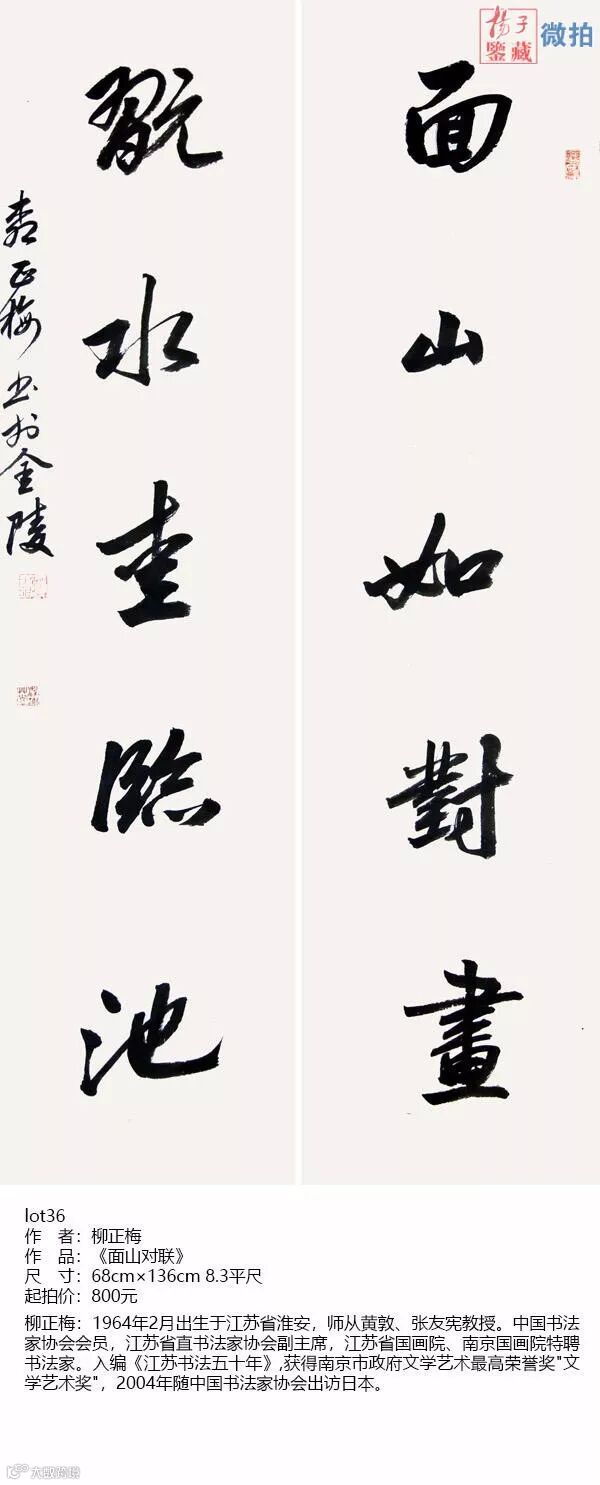 揚子
鑒藏
微拍
面山如對畫
翫水臨池
正梅书於金陵
lot36
作 者：柳正梅
作 品：《面山对联》
尺 寸：68cm×136cm 8.3平尺
起拍价：800元
柳正梅：1964年2月出生于江苏省淮安，师从黄敦、张友宪教授。中国书法
家协会会员，江苏省直书法家协会副主席，江苏省国画院、南京国画院特聘
书法家。入编《江苏书法五十年》,获得南京市政府文学艺术最高荣誉奖"文
学艺术奖"，2004年随中国书法家协会出访日本。
大数跨境